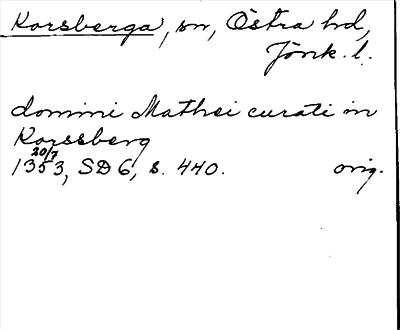 Korsberga, sn, Östra hd,
Jönk. l.
domini Mathei curati in
Korssberg
20/7
1353, SD 6, s. 440. orig.